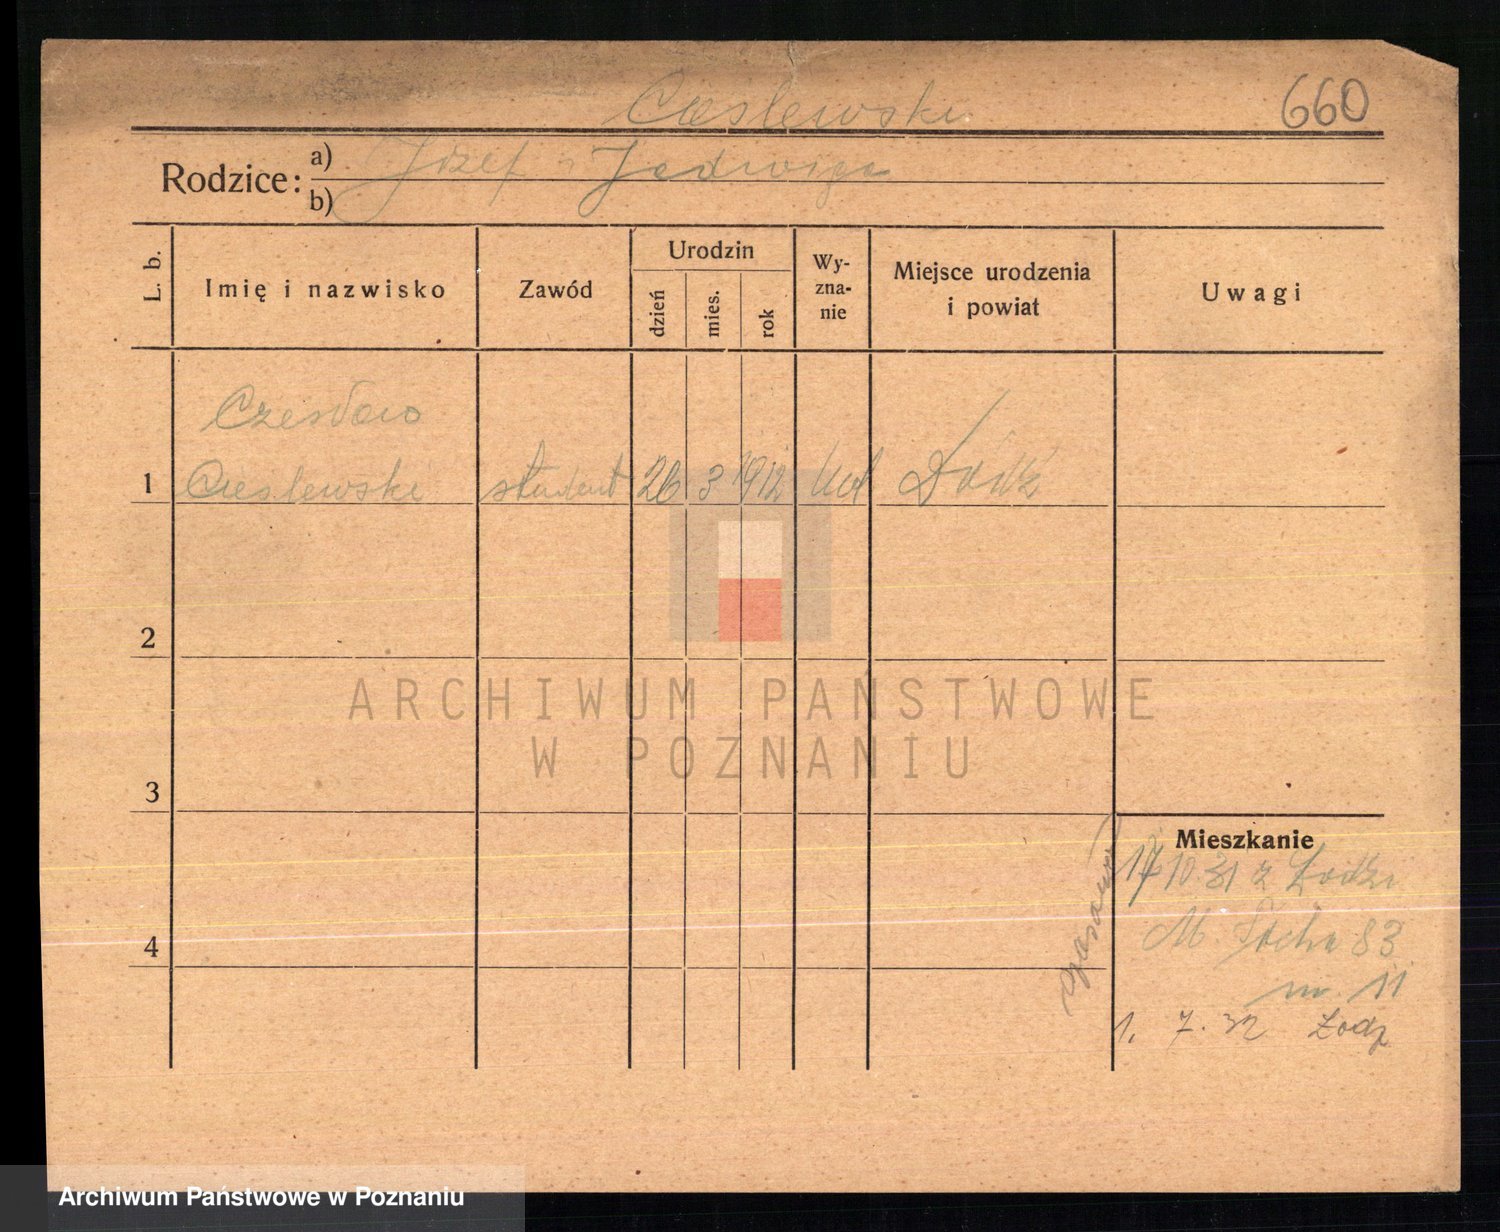 Cieslewski
660
Rodzice: a) Józef i Jadwiga
b)
L. b.
Imię i nazwisko
Zawód
Urodzin
dzień
mies.
rok
Wy-
zna-
nie
Miejsce urodzenia
i powiat
Uwagi
Czesław
1 Cieslewski student 26 3 1912 kat Łódź
2
3
4
Mieszkanie
17 10 31 z Łodzi
M. Focha 83
m. 11
1. 7. 32 Łodz
ARCHIWUM PAŃSTWOWE
W POZNANIU
Archiwum Państwowe w Poznaniu